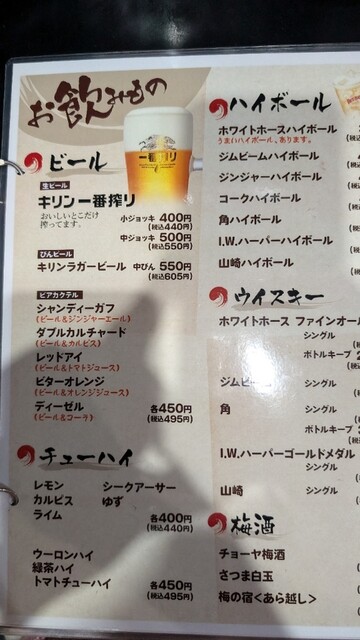 お飲みもの
一番搾り
ビール
生ビール
キリン一番搾り
おいしいとこだけ
搾ってます。
小ジョッキ 400円
(税込440円)
中ジョッキ 500円
(税込550円)
びんビール
キリンラガービール 中びん 550円
(税込605円)
ビアカクテル
シャンディーガフ
(ビール&ジンジャーエール)
ダブルカルチャード
(ビール&カルピス)
レッドアイ
(ビール&トマトジュース)
ビターオレンジ
(ビール&オレンジジュース)
ディーゼル 各450円
(ビール&コーラ) (税込495円)
チューハイ
レモン シークアーサー
カルピス ゆず
ライム 各400円
(税込440円)
ウーロンハイ
緑茶ハイ
トマトチューハイ 各450円
(税込495円)
ハイボール
ホワイトホースハイボール
うまいハイボール、あります。
ジムビームハイボール
ジンジャーハイボール
コークハイボール
角ハイボール
I.W.ハーパーハイボール
山崎ハイボール
ウイスキー
ホワイトホース ファインオール
シングル
ボトルキープ
ジムビーム シングル
角 シングル
ボトルキープ
I.W.ハーパーゴールドメダル
シングル
山崎 シングル
梅酒
チョーヤ梅酒
さつま白玉
梅の宿<あら越し>